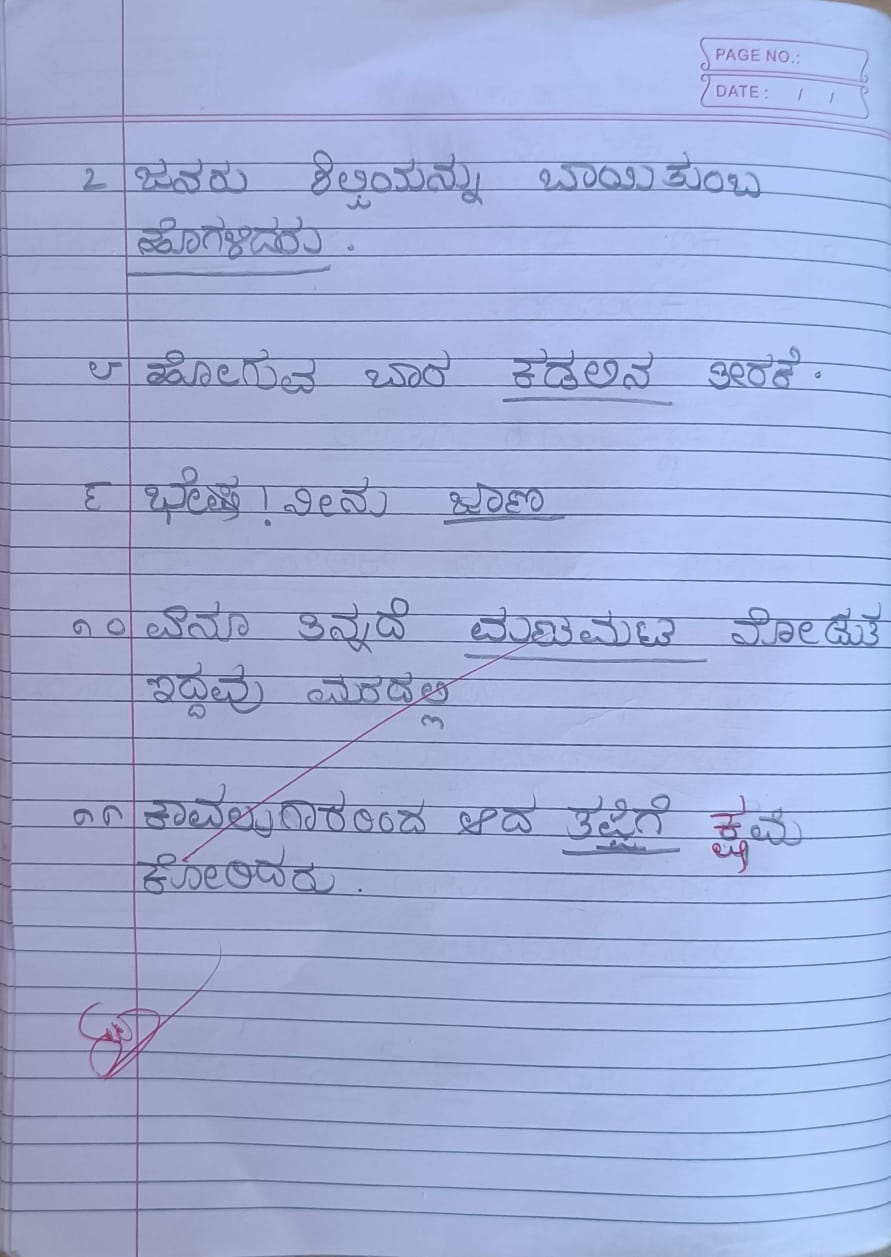 PAGE NO.:
DATE: / /
೭ ಜನರು ಶಿಲ್ಪಿಯನ್ನು ಬಾಯಿತುಂಬ
ಹೊಗಳಿದರು.
೮ ಹೋಗುವ ಬಾರ ಕಡಲಿನ ತೀರಕೆ.
೯ ಭೇಷ! ನೀನು ಜಾಣ
೧೦ ಏನೂ ತಿನ್ನದೆ ಮಿಣಿಮಿಟಿ ನೋಡುತ
ಇದ್ದವು ಮರದಲ್ಲಿ
೧೧ ಕಾವಲುಗಾರರಿಂದ ಆದ ತಪ್ಪಿಗೆ ಕ್ಷಮೆ
ಕೋರಿದರು.